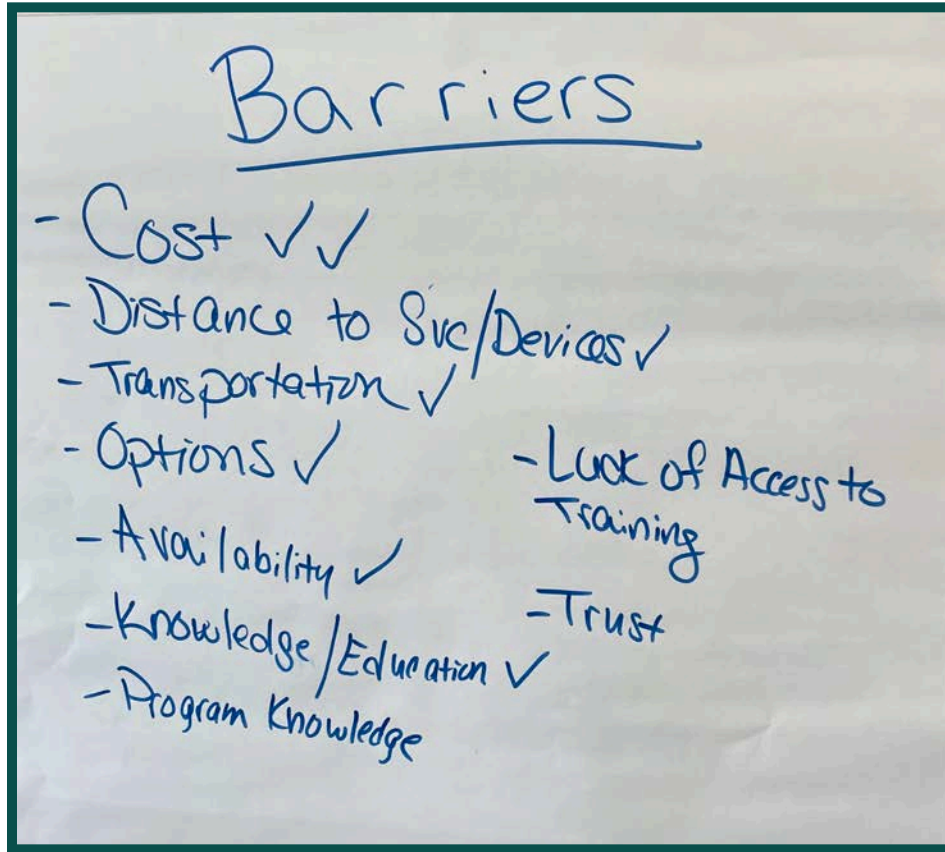 Barriers
- Cost ✓✓
- Distance to Svc/Devices ✓
- Transportation ✓
- Options ✓
- Availability ✓
- Knowledge/Education ✓
- Program Knowledge
- Lack of Access to
Training
- Trust